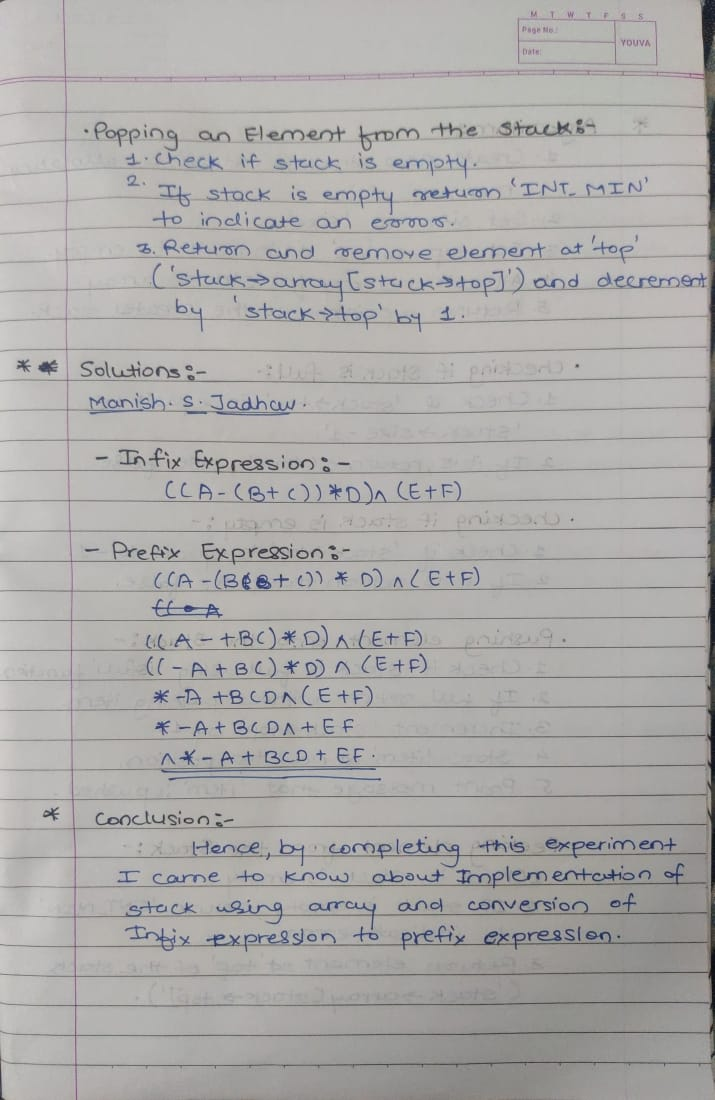 M T W T F S S
Page No.:
YOUVA
Date:
• Popping an Element from the stack:-
1. Check if stack is empty.
2. If stack is empty return 'INT_MIN'
to indicate an error.
3. Return and remove element at 'top'
('stack→array[stack→top]') and decrement
by 'stack→top' by 1.
** Solutions:-
Manish. S. Jadhav.
- Infix Expression:-
((A-(B+C))*D)^(E+F)
- Prefix Expression:-
((A-(B+C))*D)^(E+F)
((A-+BC)*D)^(E+F)
((-A+BC)*D)^(E+F)
*-A+BCD^(E+F)
*-A+BCD^+EF
^*-A+BCD+EF.
* Conclusion:-
Hence, by completing this experiment
I came to know about Implementation of
stack using array and conversion of
Infix expression to prefix expression.